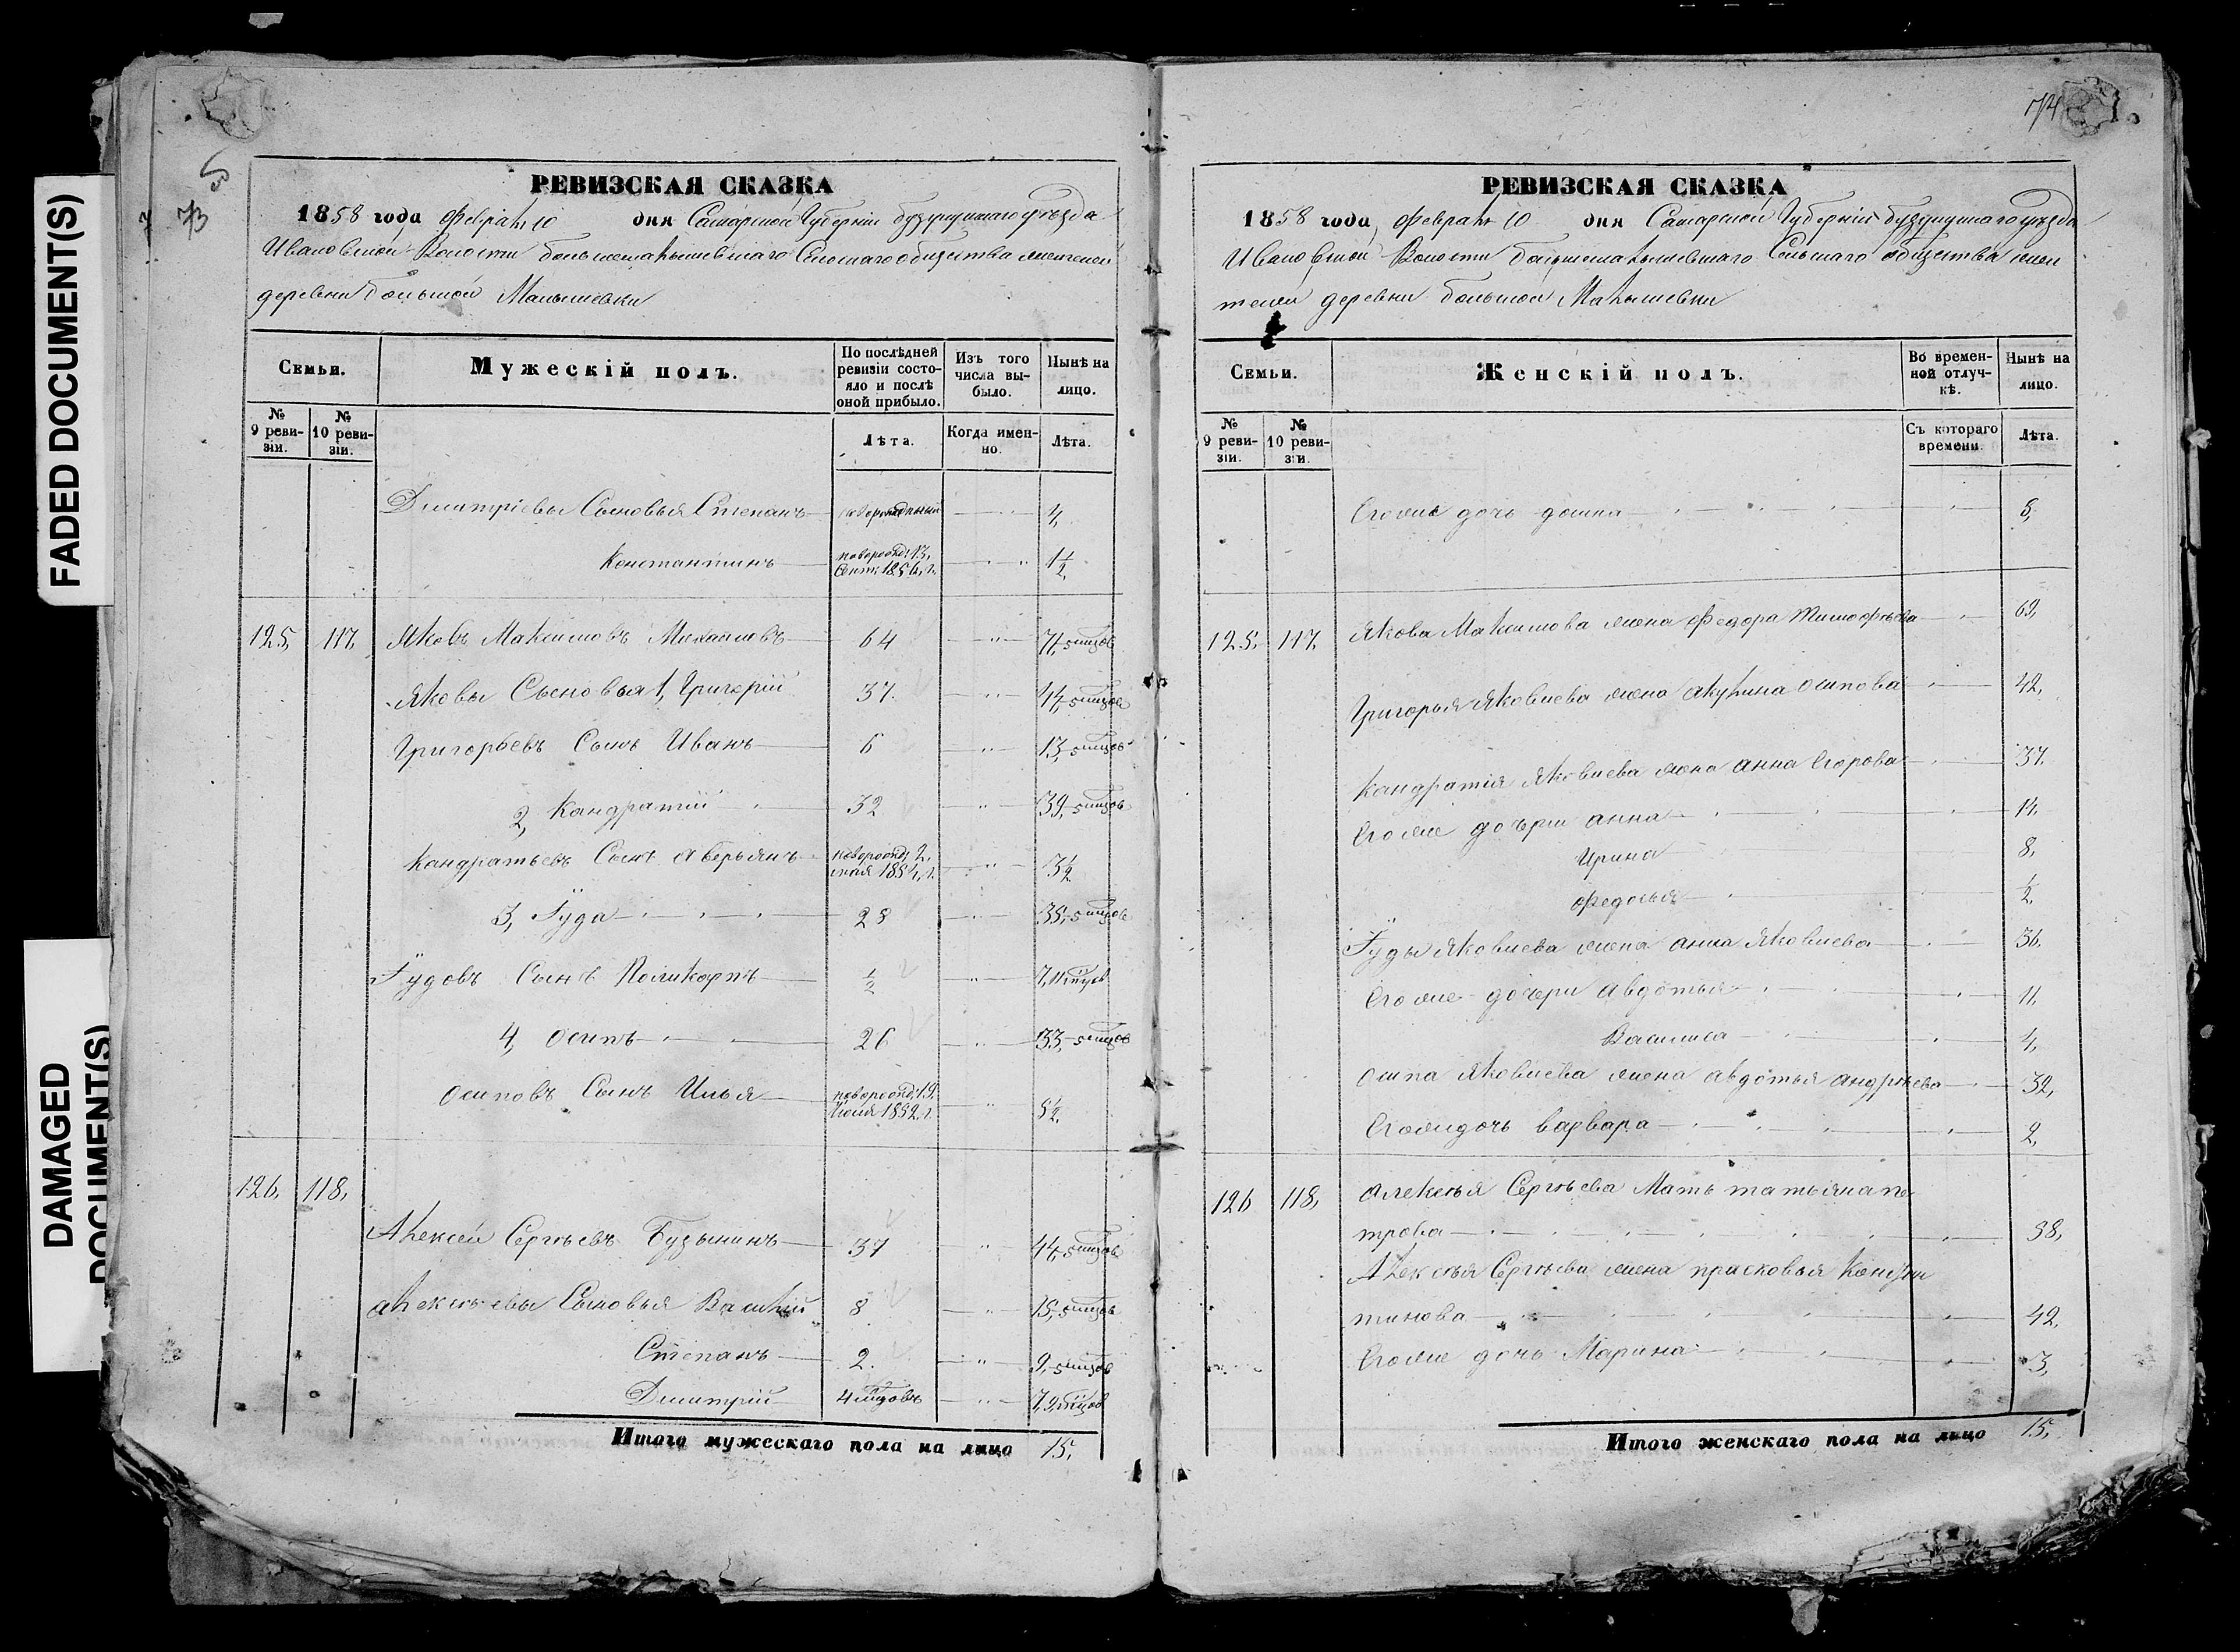 FADED DOCUMENT(S)
DAMAGED
DOCUMENT(S)
73
РЕВИЗСКАЯ СКАЗКА
1858 года февраля 10 дня Самарской Губернии бузулукского уезда
Ивановской Волости большемалышевскаго Сельскаго общества жителей
деревни большой Малышевки
Семьи.
Мужескій полъ.
По послѣдней ревизіи состояло и послѣ оной прибыло.
Изъ того числа выбыло.
Нынѣ на лицо.
№ 9 ревизіи.
№ 10 ревизіи.
Лѣта.
Когда именно.
Лѣта.
Дмитріевы Сыновья Степанъ новорожденный 4,
Константинъ новорожд: 13, Сент: 1856, г. 1 1/2
125, 117, Яковъ Максимовъ 64 71, 5 мцов
Яковы Сыновья 1, Григорій 37. 44, 5 мцов
Григорьевъ Сынъ Иванъ 6 13, 5 мцов
2, Кандратій 32 39, 5 мцов
Кандратьевъ Сынъ Аверьянъ новорожд: 2, мая 1854, г. 3 1/2
3, Іуда 28 35, 5 мцов
Іудовъ Сынъ Поликарпъ 1/2 7, 11 мцов
4, Осипъ 26 33, 5 мцов
Осиповъ Сынъ Илья новорожд: 19, Іюля 1852. г. 5 1/2
126, 118,
Алексей Сергѣевъ 37 44, 5 мцов
Алексѣевы Сыновья Василій 8 15, 5 мцов
Степанъ 2. 9, 5 мцов
Дмитрій 4 мцовъ 7, 9, мцов
Итого мужескаго пола на лицо 15,
74
РЕВИЗСКАЯ СКАЗКА
1858 года, февраля 10 дня Самарской Губерніи бузулукского уезда
Ивановской Волости большемалышевскаго Сельскаго общества жи
телей деревни большой Малышевки
Семьи.
Женскій полъ.
Во временной отлучкѣ.
Нынѣ на лицо.
№ 9 ревизіи.
№ 10 ревизіи.
Съ котораго времени.
Лѣта.
Его же дочь домна 8,
125, 117, Якова Максимова жена федора Тимофѣева 69,
Григорья Яковлева жена акулина осипова 42,
Кандратія Яковлева жена анна Егорова 37.
Его же дочери анна 14.
Ирина 8,
федосья 1/2
Іуды Яковлева жена анна Яковлева 36.
Его же дочери авдотья 11,
Василиса 4,
осипа Яковлева жена авдотья андрѣева 32,
Его же дочь варвара 2,
126 118, алексѣя Сергѣева Мать татьяна пе
трова 38,
Алексѣя Сергѣева жена прасковья Конста
тинова 42,
Его же дочь Марина 3,
Итого женскаго пола на лицо 15,